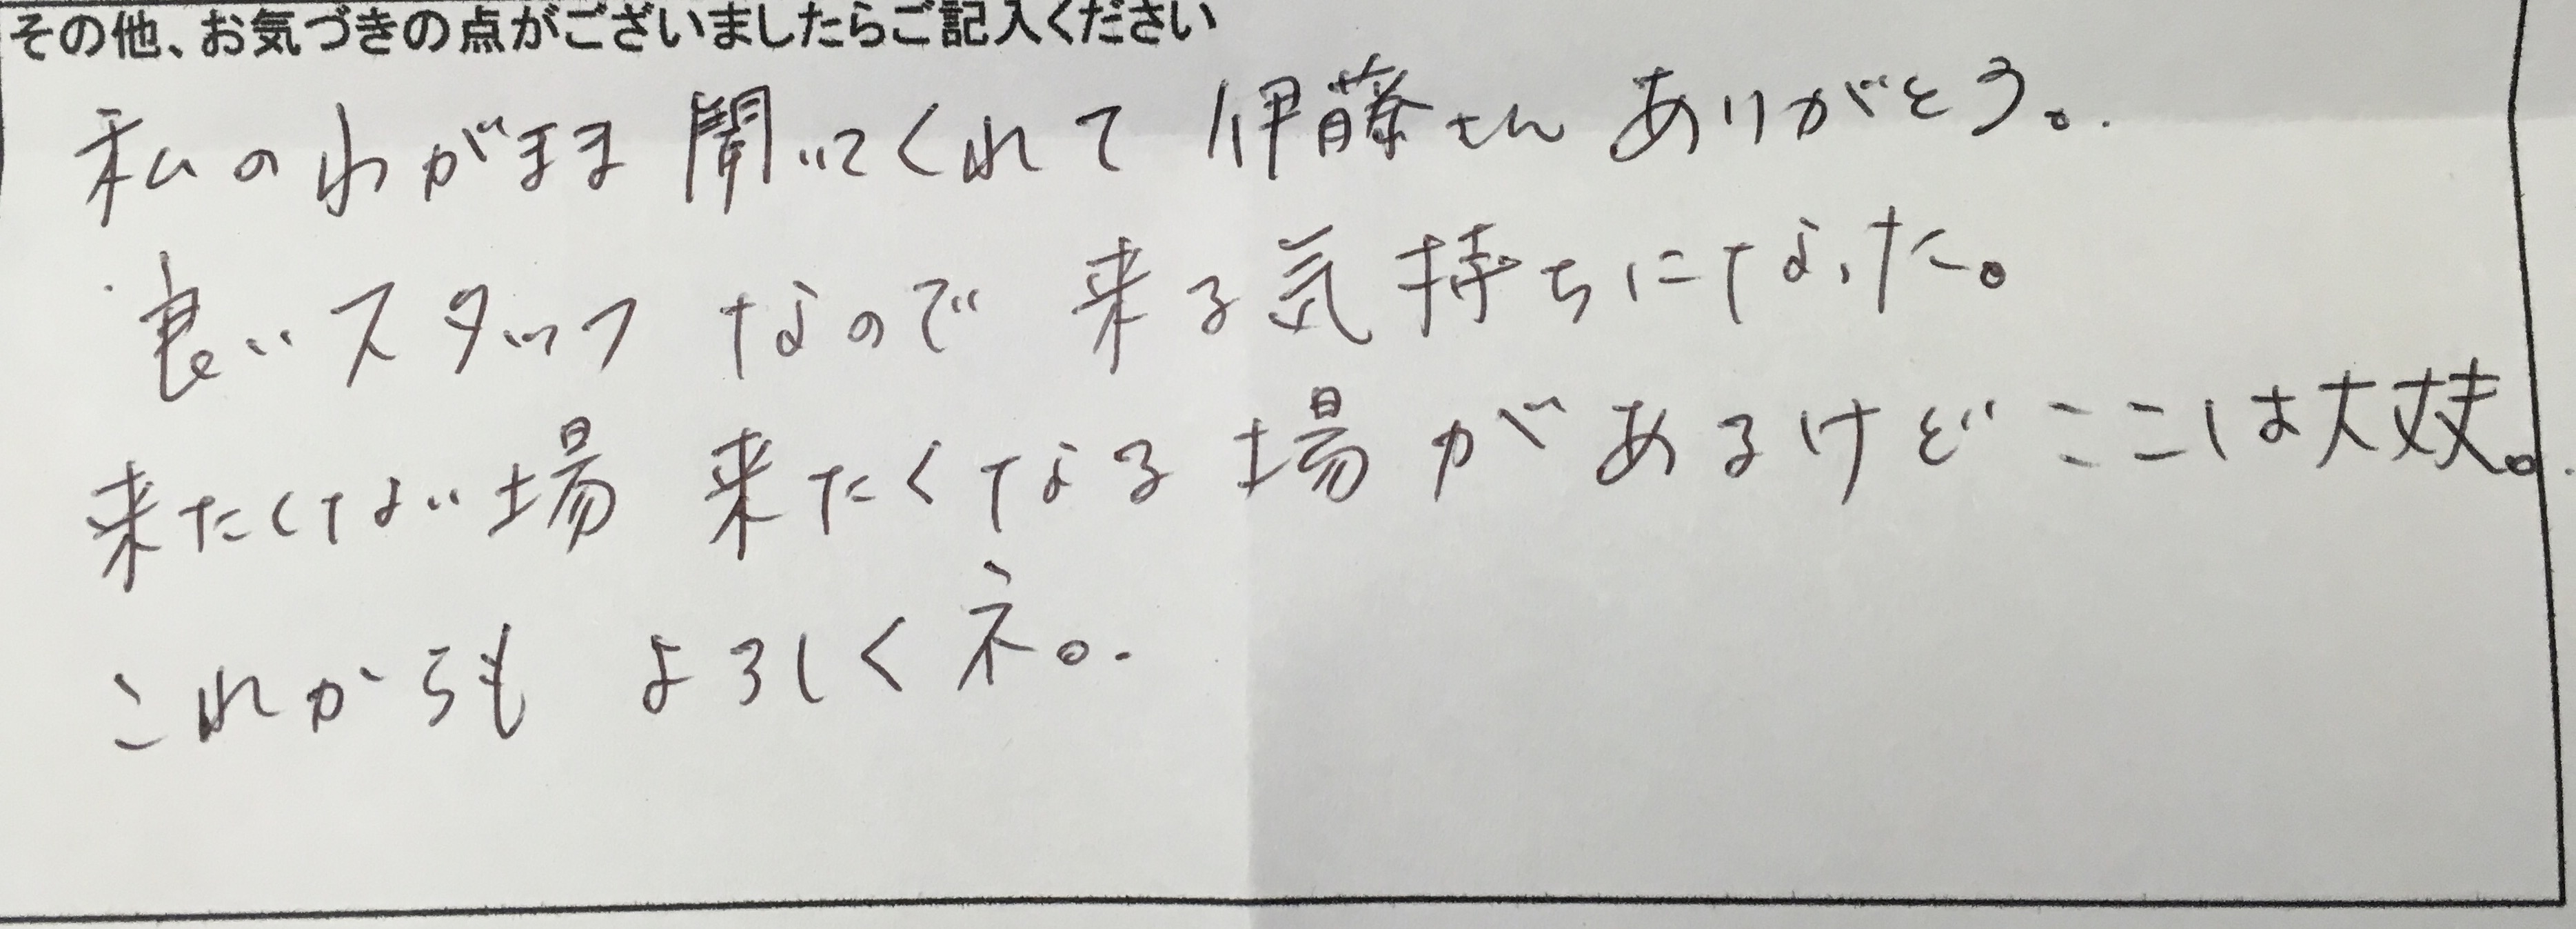 その他、お気づきの点がございましたらご記入ください
私のわがまま聞いてくれて伊藤さんありがとう。
良いスタッフなので来る気持ちになった。
来たくない場 来たくなる場があるけどここは大丈夫。
これからも よろしくネ。